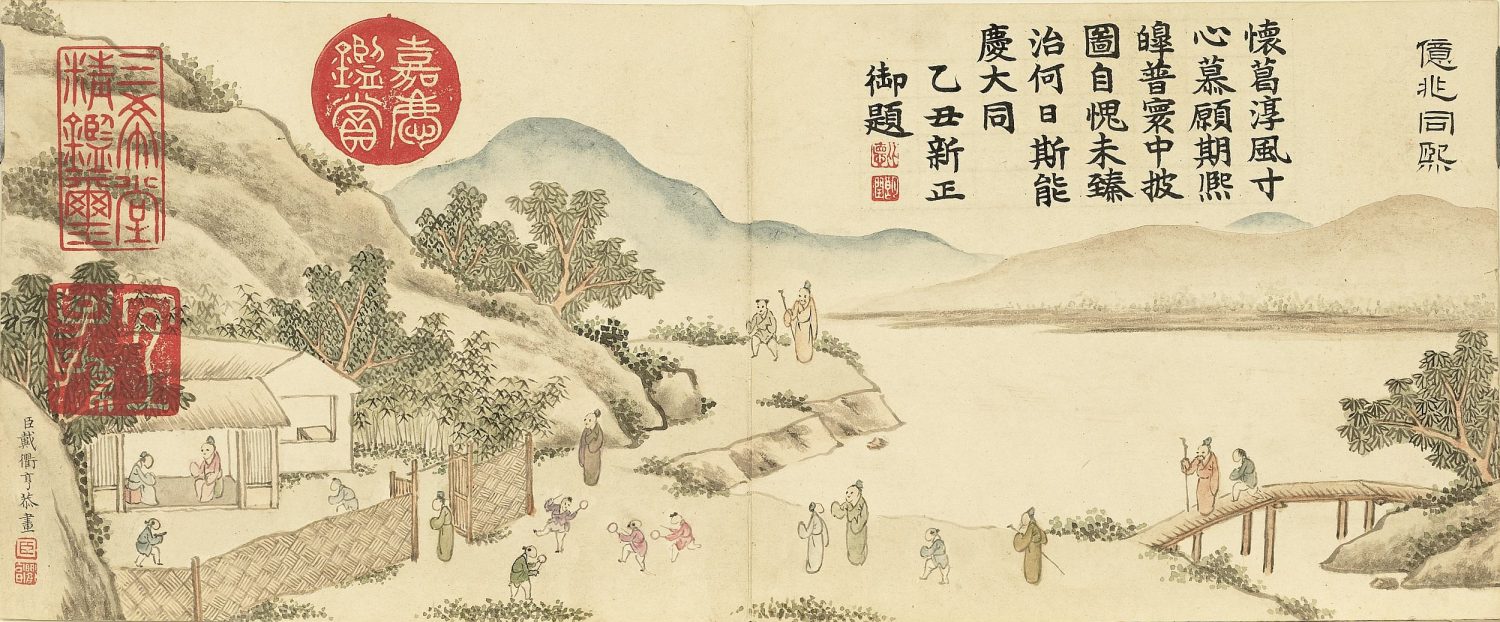 億兆同熙
懷葛淳風寸
心慕願期熈
皞普寰中披
圖自愧未臻
治何日斯能
慶大同
乙丑新正
御題
嘉慶鑑賞
三希堂精鑑璽
宜子孫
臣戴衢亨恭畫
臣